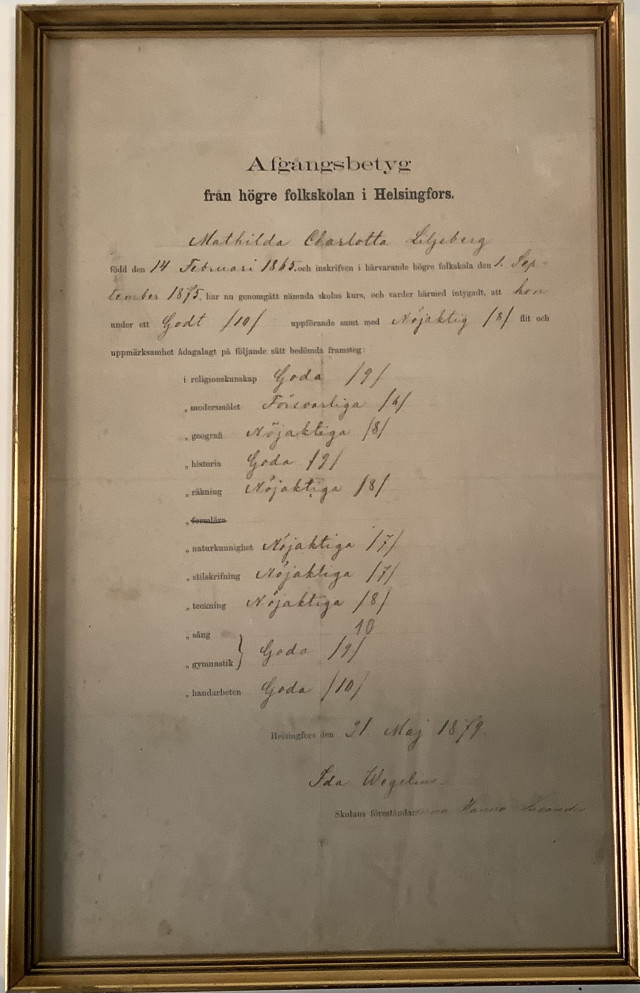 Afgångsbetyg
från högre folkskolan i Helsingfors.
Mathilda Charlotta Liljeberg
född den 14 Februari 1865, och inskrifven i härvarande högre folkskola den 1. Sep-
tember 1875, har nu genomgått nämnda skolas kurs, och varder härmed intygadt, att hon
under ett Godt /10/ uppförande samt med Nöjaktig /8/ flit och
uppmärksamhet ådagalagt på följande sätt bedömda framsteg:
i religionskunskap Goda /9/
„ modersmålet Försvarliga /6/
„ geografi Nöjaktiga /8/
„ historia Goda /9/
„ räkning Nöjaktiga /8/
„ formlära
„ naturkunnighet Nöjaktiga /7/
„ stilskrifning Nöjaktiga /7/
„ teckning Nöjaktiga /8/
„ sång 10
„ gymnastik } Goda /9/
„ handarbeten Goda /10/
Helsingfors den 31 Maj 1879.
Ida Wegelius
Skolans föreståndarinna Hanna